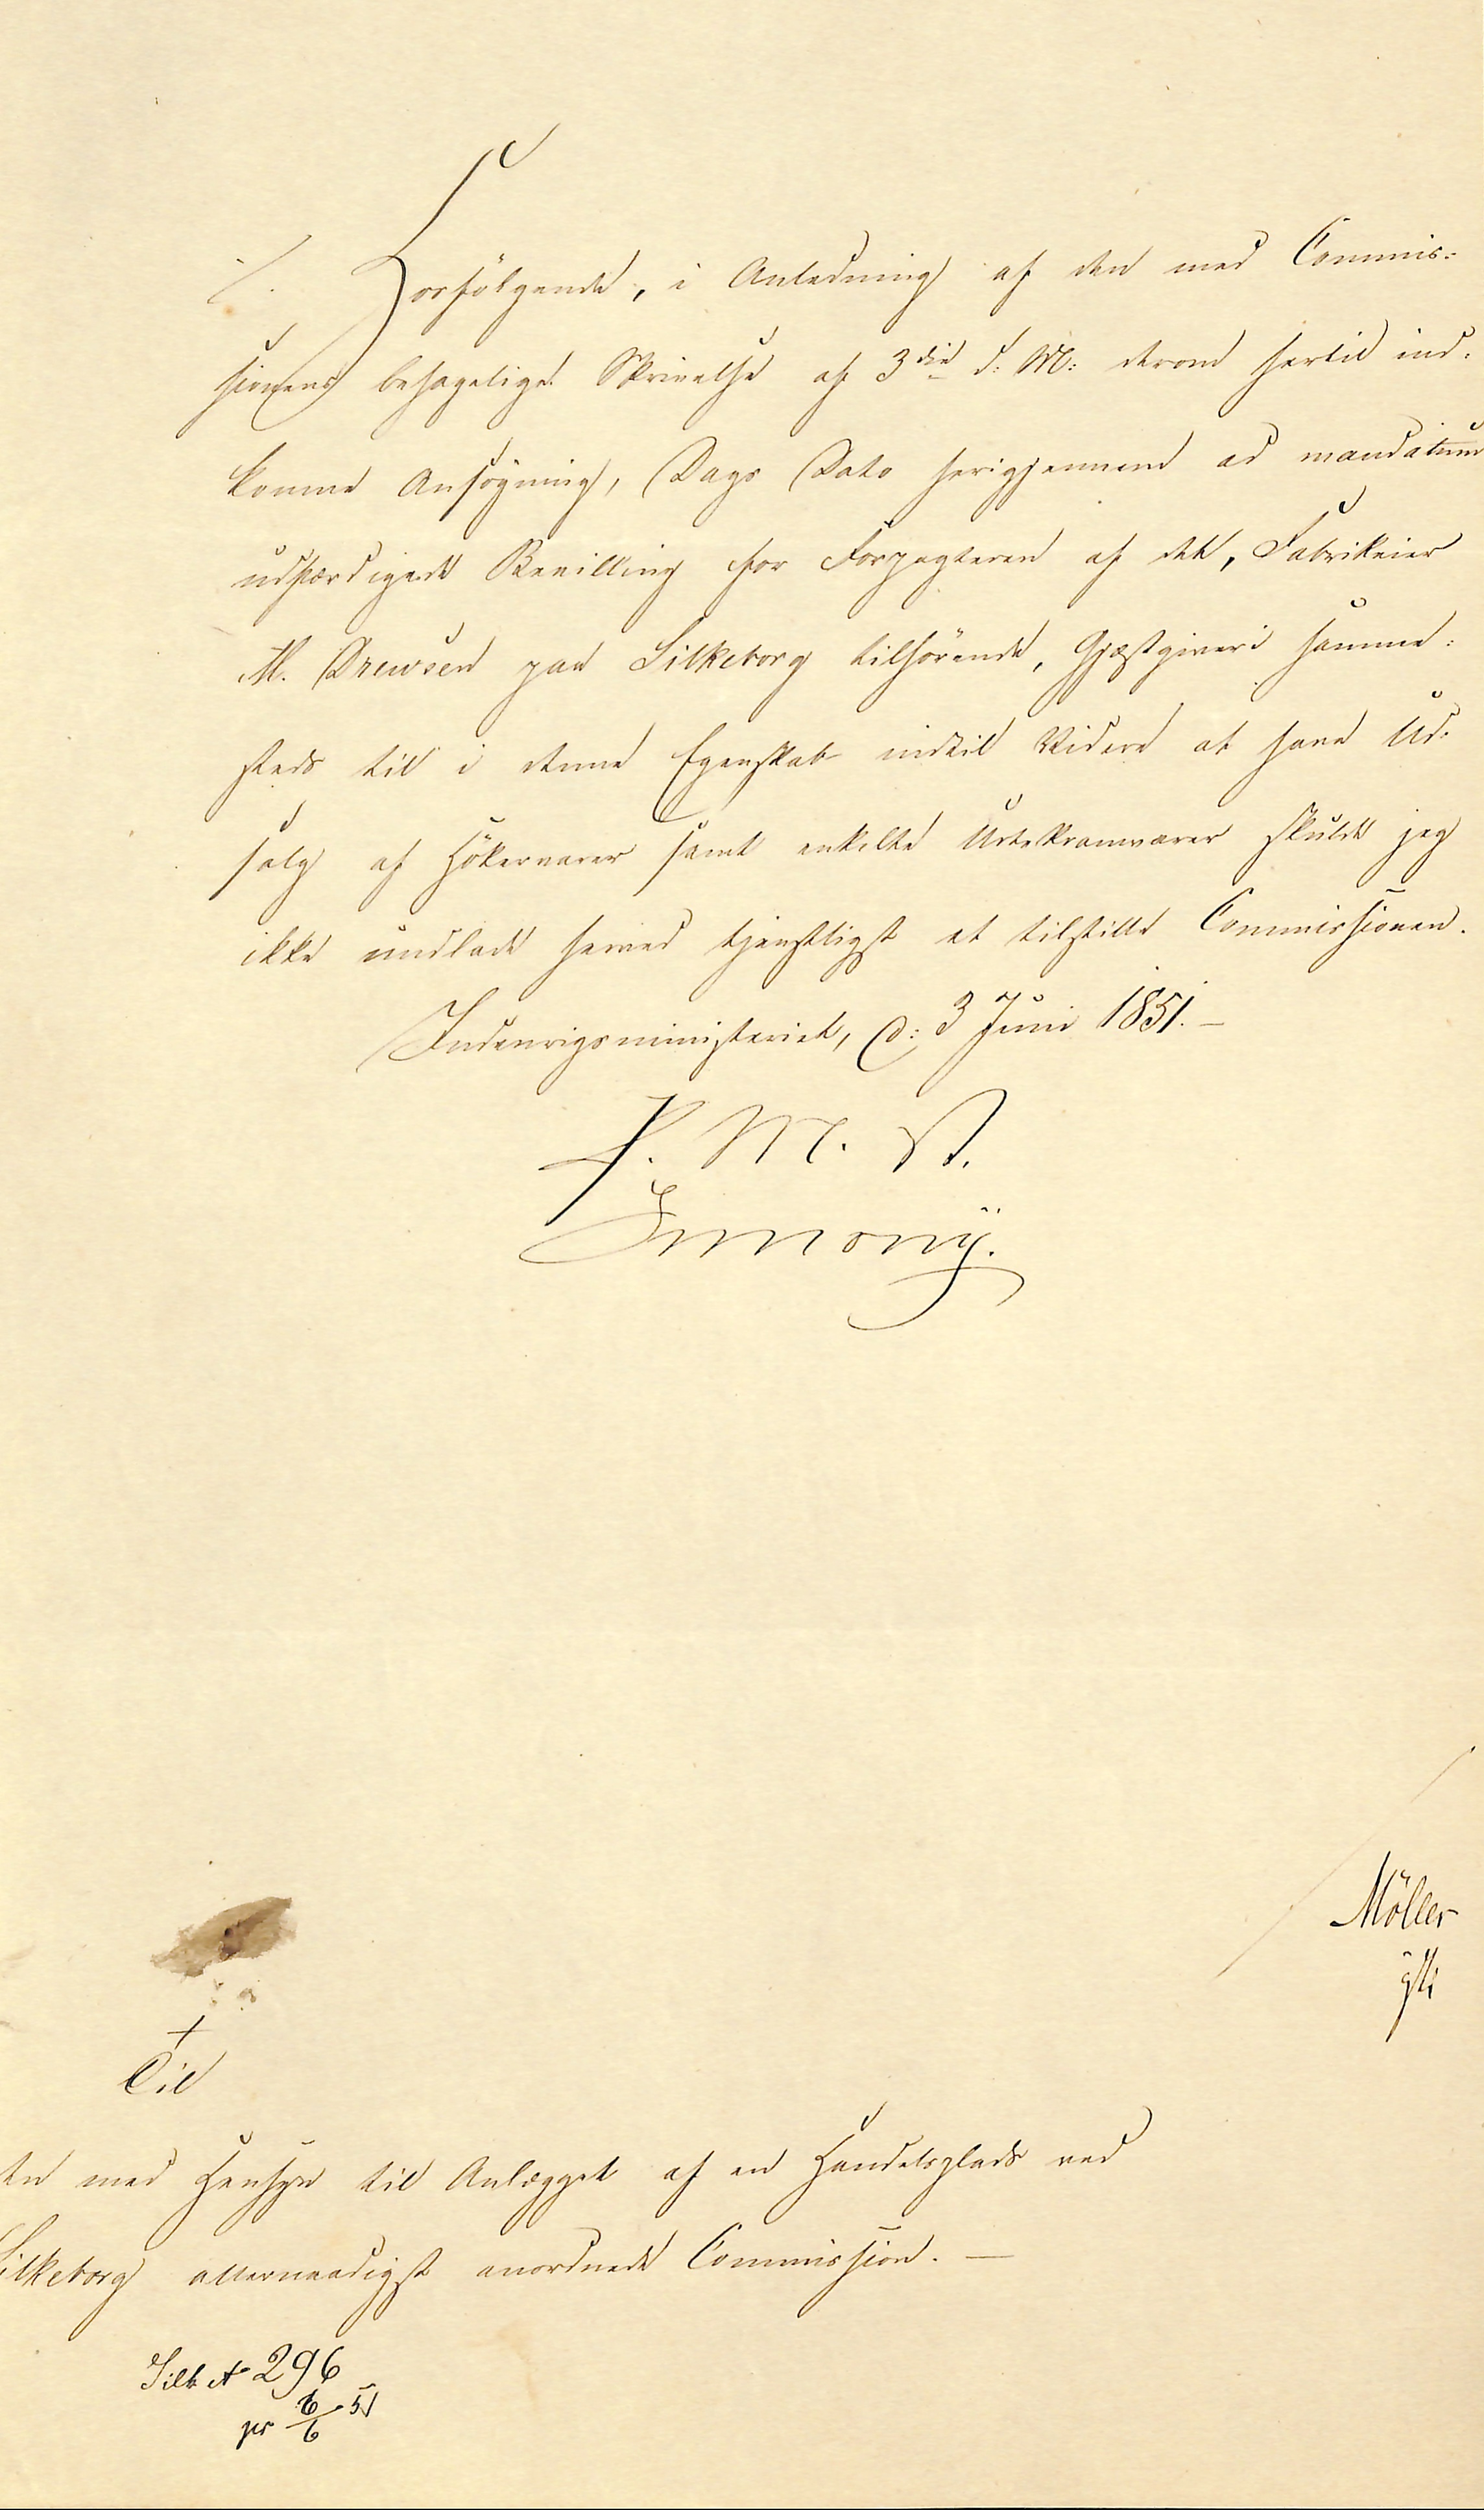 ./. Hosfølgende, i Anledning af den med Commis:
sionens behagelige Skrivelse af 3die d: M: derom hertil ind:
komne Ansøgning, Dags Dato herigjennem ad mandatum
udfærdigede Bevilling for Forpagteren af det, Fabrikeier
M. Drewsen paa Silkeborg tilhørende, Gjæstgiveri samme:
steds til i denne Egenskab indtil Videre at have Ud:
salg af Høkervarer samt enkelte Urtekramvarer skulde jeg
ikke undlade herved tjenstligst at tilstille Commissionen.
Indenrigsministeriet, d: 3 Juni 1851.
F. M. A.
Simony.
Möller
Til
den med Hensyn til Anlægget af en Handelsplads ved
Silkeborg allernaadigst anordnede Commission. —
Silk № 296
pr 6/6 51